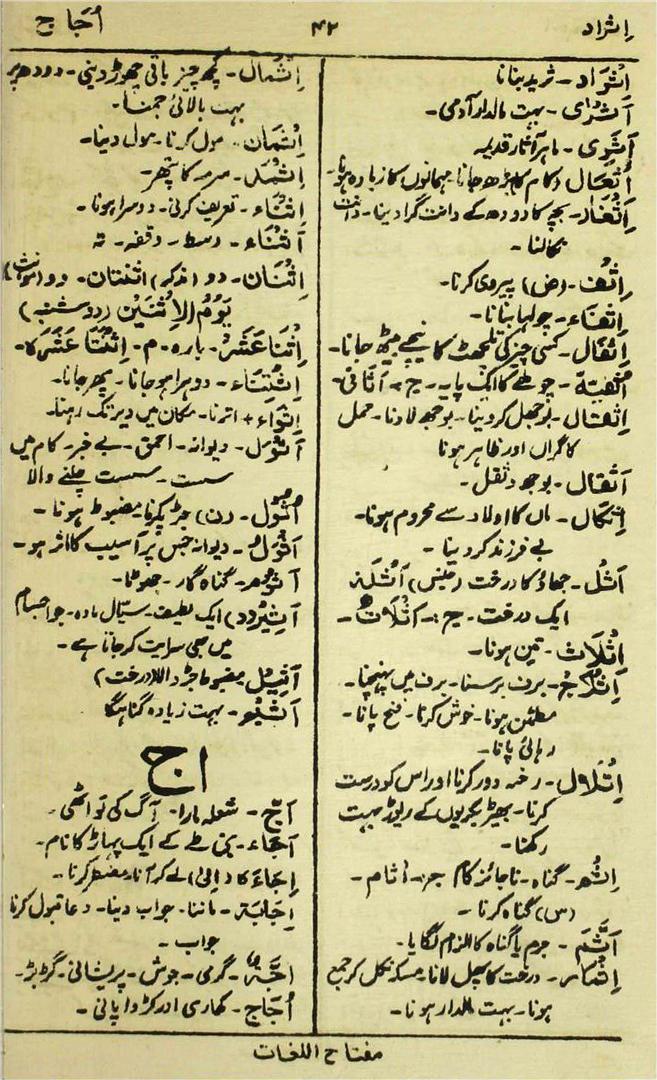 اِثراد
۴۲
اُجَاج
اِثْوَاد - ثرید بنانا
اَثْرٰی - بہت مالدار آدمی -
اَثَرِی - ماہر آثار قدیمہ
اُثْعَال - کام کا بڑھ جانا، مہمانوں کا زیادہ ہونا -
اِثْغَار - بچہ کا دودھ کے دانت گرا دینا - دانت
نکالنا -
اِثْف - (ض) پیروی کرنا -
اِثفاء - چولہا بنانا -
اِثْفَال - کسی چیز کی تلچھٹ کا نیچے بیٹھ جانا -
اُثفیة - چولھے کا ایک پایہ - ج، اَثَافی -
اِثْقَال - بوجھل کر دینا - بوجھ لادنا - حمل
کا گراں اور ظاہر ہونا
اَثقال - بوجھ و ثقل -
اِثکَال - ماں کا اولاد سے محروم ہونا -
بے فرزند کر دینا -
اَثْل - جھاؤ کا درخت (جنس) اَثْلَة
ایک درخت - ج : اَثْلَاتٌ -
اِثْلَاث - تین ہونا -
اِثْلَاج - برف برسنا - برف میں پہنچنا -
مطمئن ہونا - خوش کرنا - فتح پانا -
رہائی پانا -
اِثْلَال - رخنہ دور کرنا اور اس کو درست
کرنا - بھیڑ بکریوں کے ریوڑ بہت
رکھنا -
اِثْم - گناہ - ناجائز کام ج : اٰثام -
(س) گناہ کرنا -
اَثَّمَ - جرم یا گناہ کا الزام لگایا -
اِثْمَار - درخت کا پھل لانا، مسکہ نکل کر جمع
ہونا - بہت مالدار ہونا -
اِثْمَال - کچھ چیز باقی چھوڑ دینی - دودھ پر
بہت بالائی جمنا -
اِثْمَان - مول کرنا - مول دینا -
اِثْمَد - سرمہ کا پتھر -
اِثْنَاء - تعریف کرنی - دوسرا ہونا -
اَثْنَاء - وسط - وقفہ - تہ
اِثْنَان - دو (مذکر) اثنتان - دو (مونث)
یَوْمُ الِاثْنَیْن (دوشنبہ)
اِثْنَا عَشَرَ - بارہ - م - اِثْنَتَا عَشَرَة -
اِثْنِنَاء - دوہرا ہو جانا - پھر جانا -
اِثْوَاء + اترنا - مکان میں دیر تک رہنا -
اَثْوَل - دیوانہ - احمق - بے خبر - کام میں
سست - سست چلنے والا
اُثُوْل - (ن) جڑ پکڑنا مضبوط ہونا -
اَثْوَلُ - دیوانہ جس پر آسیب کا اثر ہو -
اَثوم - گناہ گار - جھوٹا -
اَثِیْر (د) ایک لطیف - سیّال مادہ - جو اجسام
میں بھی سرایت کر جاتا ہے -
اَثِیْل مضبوط جڑ والا (درخت)
اَثِیْم - بہت زیادہ گناہگار
اج
اَجّ - شعلہ مارا - آگ کی لو اٹھی -
اَجَاء - بنی طے کے ایک پہاڑ کا نام -
اِجَاءَة (الی) لے کر آنا، مضطر کرنا -
اِجَابَة - ماننا - جواب دینا - دعا قبول کرنا
جواب -
اجَّة - گرمی - جوش - پریشانی - گڑبڑ -
اُجَاج - کھاری اور کڑوا پانی -
مفتاح اللغات